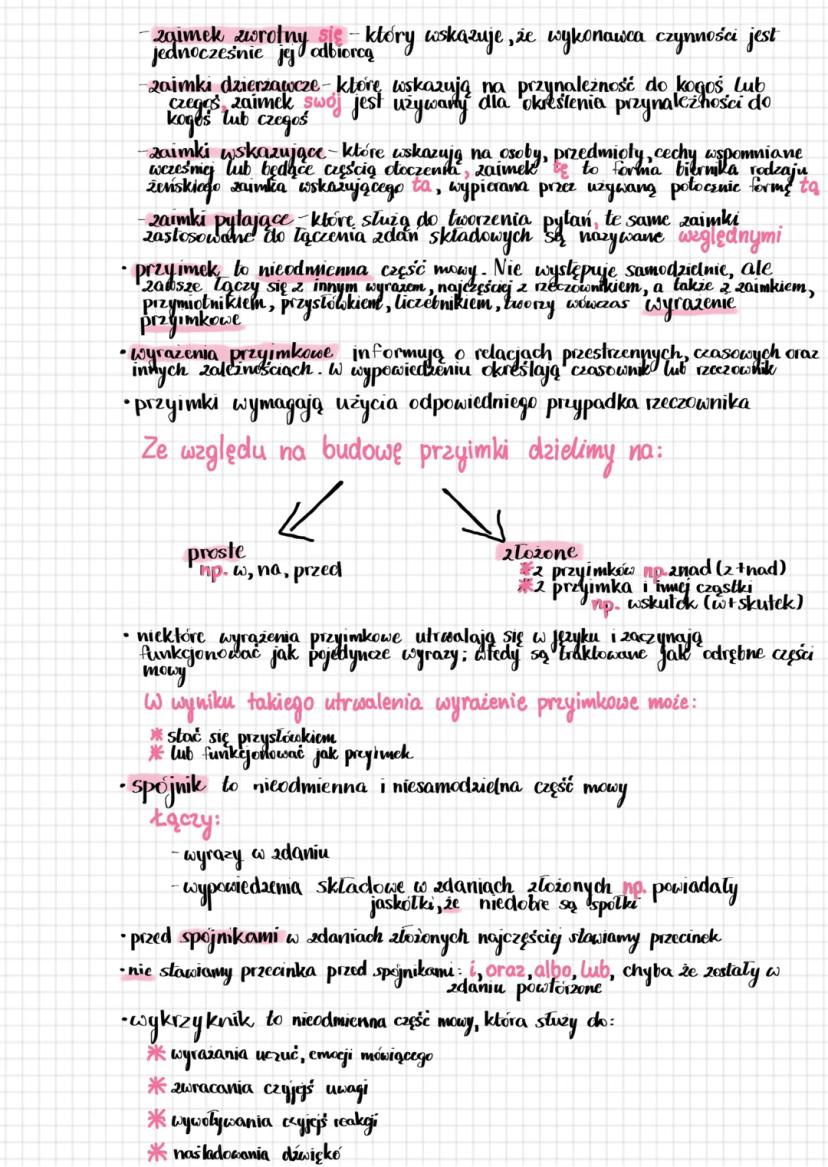 - zaimek zwrotny się - który wskazuje, że wykonawca czynności jest
jednocześnie jej odbiorcą
- zaimki dzierżawcze - które wskazują na przynależność do kogoś lub
czegoś, zaimek swój jest używany dla określenia przynależności do
kogoś lub czegoś
- zaimki wskazujące - które wskazują na osoby, przedmioty, cechy wspomniane
wcześniej lub będące częścią otoczenia, zaimek tę to forma biernika rodzaju
żeńskiego zaimka wskazującego ta, wypierana przez używaną potocznie formę tą
- zaimki pytające - które służą do tworzenia pytań, te same zaimki
zastosowane do łączenia zdań składowych są nazywane względnymi
• przyimek to nieodmienna część mowy. Nie występuje samodzielnie, ale
zawsze łączy się z innym wyrazem, najczęściej z rzeczownikiem, a także z zaimkiem,
przymiotnikiem, przysłówkiem, liczebnikiem, tworzy wówczas wyrażenie
przyimkowe
• wyrażenia przyimkowe informują o relacjach przestrzennych, czasowych oraz
innych zależnościach. W wypowiedzeniu określają czasownik lub rzeczownik
• przyimki wymagają użycia odpowiedniego przypadka rzeczownika
Ze względu na budowę przyimki dzielimy na:
proste
np. w, na, przed
złożone
* z przyimków np. znad (z+nad)
* z przyimka i innej cząstki
np. wskutek (w+skutek)
• niektóre wyrażenia przyimkowe utrwalają się w języku i zaczynają
funkcjonować jak pojedyncze wyrazy; wtedy są traktowane jak odrębne części
mowy
W wyniku takiego utrwalenia wyrażenie przyimkowe może:
* stać się przysłówkiem
* lub funkcjonować jak przyimek
• spójnik to nieodmienna i niesamodzielna część mowy
Łączy:
- wyrazy w zdaniu
- wypowiedzenia składowe w zdaniach złożonych np. powiadały
jaskółki, że niedobre są spółki
• przed spójnikami w zdaniach złożonych najczęściej stawiamy przecinek
• nie stawiamy przecinka przed spójnikami: i, oraz, albo, lub, chyba że zostały w
zdaniu powtórzone
• wykrzyknik to nieodmienna część mowy, która służy do:
* wyrażania uczuć, emocji mówiącego
* zwracania czyjejś uwagi
* wywoływania czyjejś reakcji
* naśladowania dźwiękó